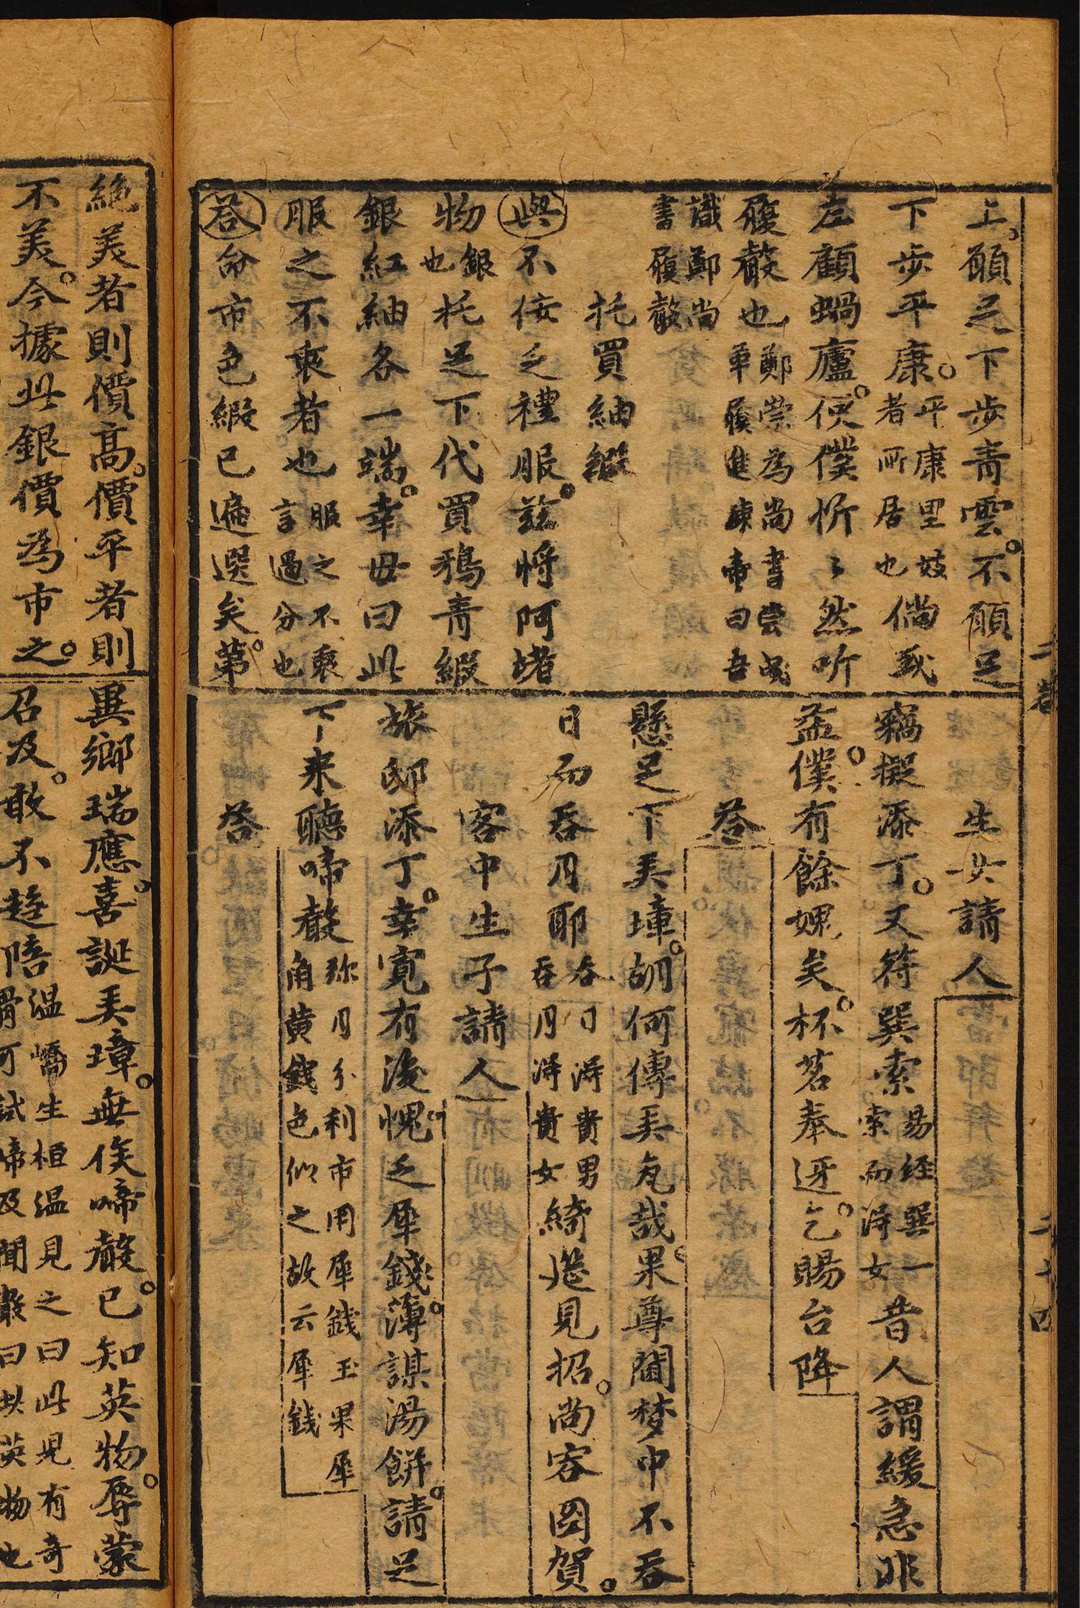 上願足下步青雲不願足
下步平康平康里妓者所居也倘或
左顧蝸廬使僕忻々然听
履聲也鄭崇為尚書嘗曳革履進諫帝曰吾
識鄭尚書履聲
托買紬緞
與不佞乏禮服茲將阿堵
物銀也托足下代買鴉青緞
銀紅紬各一端幸毋曰此
服之不衷者也服之不衷言過分也
荅命市色緞已遍選矣第
生女請人
竊擬添丁又符巽索易經巽一索而得女昔人謂緩急非
益僕有餘媿矣杯茗奉迓乞賜台降
荅
懸足下弄璋胡何傳弄瓦哉果尊閫梦中不吞
日而吞月耶吞日得貴男吞月得貴女綺筵見招尚容図賀
客中生子請人
旅邸添丁幸寬有後愧乏犀錢薄謀湯餅請足
下来聽啼聲弥月分利市用犀銭玉果犀角黄銭色似之故云犀銭
荅
二卷
二十四
絶美者則價高價平者則
不美今據此銀價為市之
異鄉瑞應喜誕弄璋無俟啼聲已知英物辱蒙
召及敢不趋陪温嶠生桓温見之曰此児有奇骨可試啼及聞聲曰此英物也